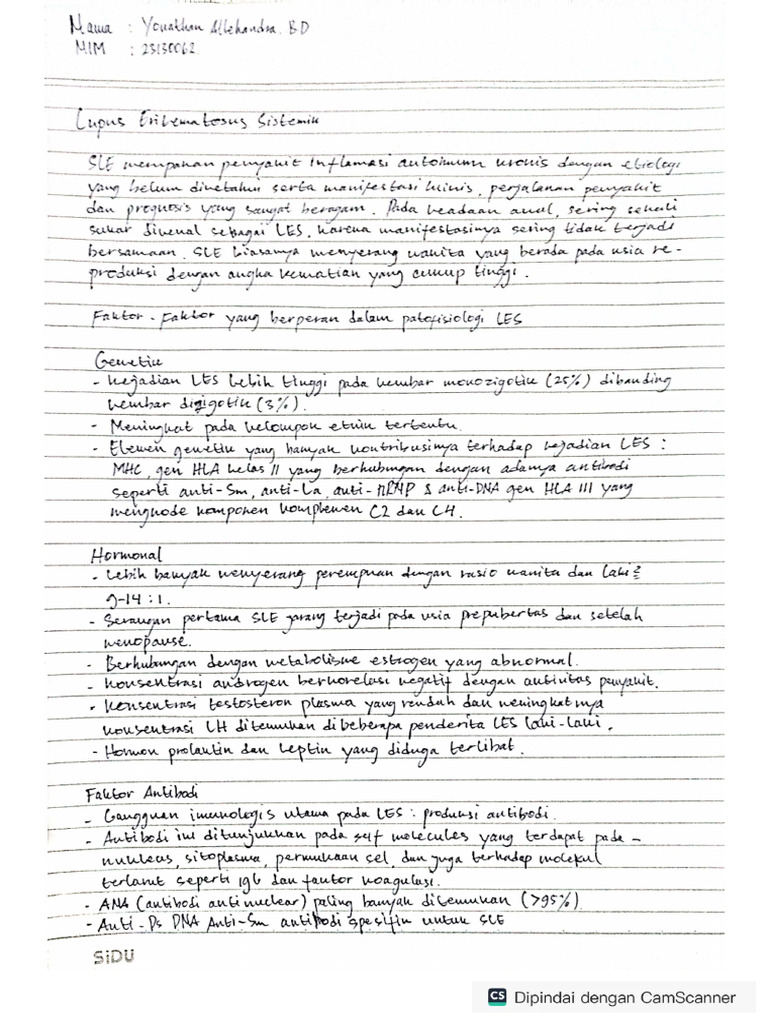 Nama : Yonathan Allehandra. BD
NIM : 23130062
Lupus Eritematosus Sistemik
SLE merupakan penyakit inflamasi autoimun kronis dengan etiologi
yang belum diketahui serta manifestasi klinis, perjalanan penyakit
dan prognosis yang sangat beragam. Pada keadaan awal, sering sekali
sukar dikenal sebagai LES, karena manifestasinya sering tidak terjadi
bersamaan. SLE biasanya menyerang wanita yang berada pada usia re-
produksi dengan angka kematian yang cukup tinggi.
Faktor-Faktor yang berperan dalam patofisiologi LES
Genetik
- Kejadian LES lebih tinggi pada kembar monozigotik (25%) dibanding
kembar dizigotik (3%).
- Meningkat pada kelompok etnik tertentu.
- Elemen genetik yang banyak kontribusinya terhadap kejadian LES :
MHC, gen HLA kelas II yang berhubungan dengan adanya antibodi
seperti anti-Sm, anti-La, anti-nRNP & anti-DNA gen HLA III yang
mengkode komponen komplemen C2 dan C4.
Hormonal
- Lebih banyak menyerang perempuan dengan rasio wanita dan laki2
9-14 : 1.
- Serangan pertama SLE jarang terjadi pada usia prepubertas dan setelah
menopause.
- Berhubungan dengan metabolisme estrogen yang abnormal.
- Konsentrasi androgen berkorelasi negatif dengan aktivitas penyakit.
- Konsentrasi testosteron plasma yang rendah dan meningkatnya
konsentrasi LH ditemukan dibeberapa penderita LES laki-laki.
- Hormon prolaktin dan leptin yang diduga terlibat.
Faktor Antibodi
- Gangguan imunologis utama pada LES : produksi antibodi.
- Antibodi ini ditunjukkan pada self molecules yang terdapat pada -
nukleus, sitoplasma, permukaan sel, dan juga terhadap molekul
terlarut seperti IgG dan faktor koagulasi.
- ANA (antibodi antinuclear) paling banyak ditemukan (>95%)
- Anti-Ds DNA Anti-Sm antibodi spesifik untuk SLE
SiDU
CS Dipindai dengan CamScanner